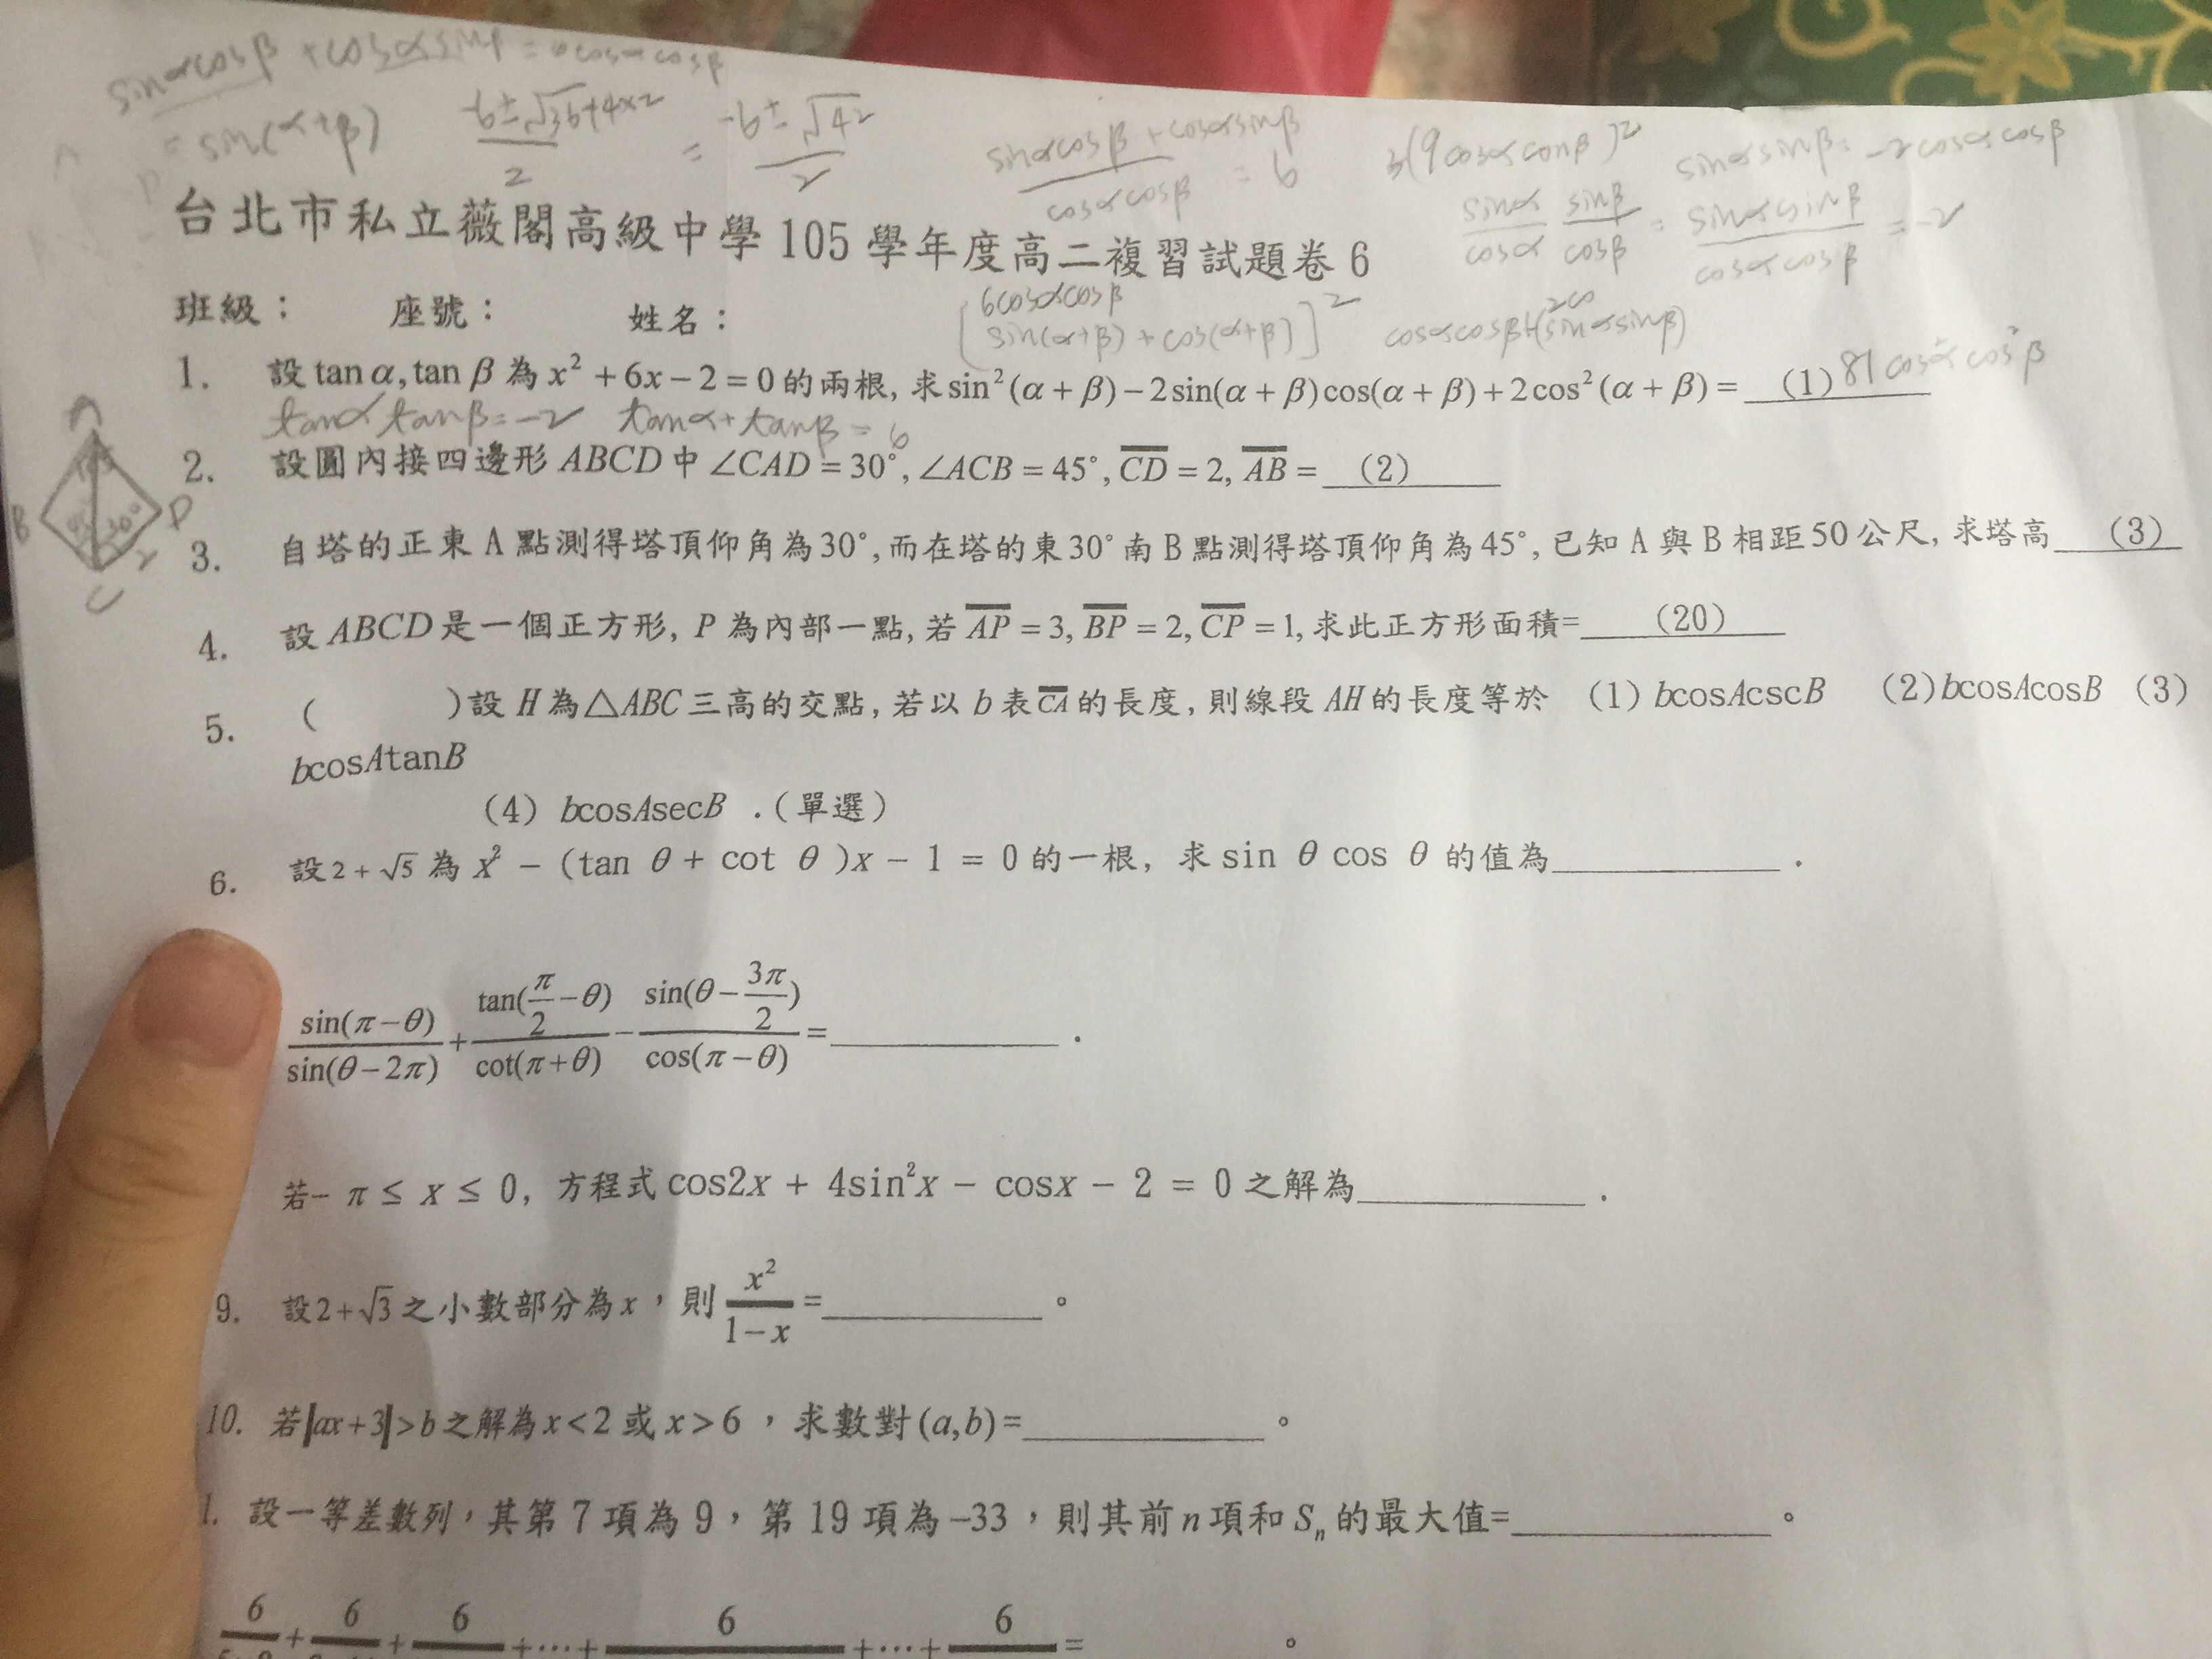 sinαcosβ + cosαsinβ = 6cosαcosβ
= sin(α+β)
-6±√36+4×2 / 2 = -6±√42 / 2
sinαcosβ + cosαsinβ / cosαcosβ = 6
3(9cosαcosβ)²
sinαsinβ = -2cosαcosβ
sinα/cosα sinβ/cosβ = sinαsinβ / cosαcosβ = -2
台北市私立薇閣高級中學 105 學年度高二複習試題卷 6
班級： 座號： 姓名：
6cosαcosβ
[sin(α+β) + cos(α+β)]²
cosαcosβ+(sinαsinβ)
1. 設 tan α, tan β 為 x² + 6x − 2 = 0 的兩根, 求 sin²(α + β) − 2sin(α + β)cos(α + β) + 2cos²(α + β) = (1) 81cos²αcos²β
tanαtanβ=-2 tanα+tanβ = 6
2. 設圓內接四邊形 ABCD 中 ∠CAD = 30°, ∠ACB = 45°, CD = 2, AB = (2)
A
B
D
C
30°
2
3. 自塔的正東 A 點測得塔頂仰角為 30°, 而在塔的東 30° 南 B 點測得塔頂仰角為 45°, 已知 A 與 B 相距 50 公尺, 求塔高 (3)
4. 設 ABCD 是一個正方形, P 為內部一點, 若 AP = 3, BP = 2, CP = 1, 求此正方形面積= (20)
5. ( )設 H 為△ABC 三高的交點, 若以 b 表 CA 的長度, 則線段 AH 的長度等於 (1) bcosAcscB (2)bcosAcosB (3)
bcosAtanB
(4) bcosAsecB .(單選)
6. 設 2 + √5 為 x² − (tan θ + cot θ )x − 1 = 0 的一根, 求 sin θ cos θ 的值為 .
sin(π−θ)/sin(θ−2π) + tan(π/2−θ)/cot(π+θ) − sin(θ−3π/2)/cos(π−θ) = .
若− π ≤ x ≤ 0, 方程式 cos2x + 4sin²x − cosx − 2 = 0 之解為 .
9. 設 2+√3 之小數部分為 x，則 x²/1−x = 。
10. 若|ax+3|>b 之解為 x<2 或 x>6，求數對(a,b)= 。
1. 設一等差數列，其第 7 項為 9，第 19 項為 −33，則其前 n 項和 Sₙ 的最大值= 。
6 + 6 + 6 +⋯+ 6 +⋯+ 6 = 。